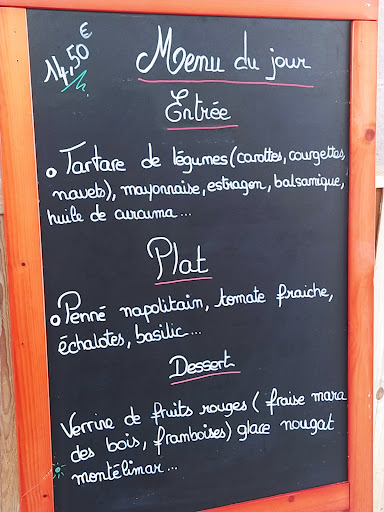 14,50€
Menu du jour
Entrée
Tartare de légumes (carottes, courgettes,
navets), mayonnaise, estragon, balsamique,
huile de curcuma...
Plat
Penné napolitain, tomate fraiche,
échalotes, basilic...
Dessert
Verrine de fruits rouges ( fraise mara
des bois, framboises) glace nougat
montélimar...